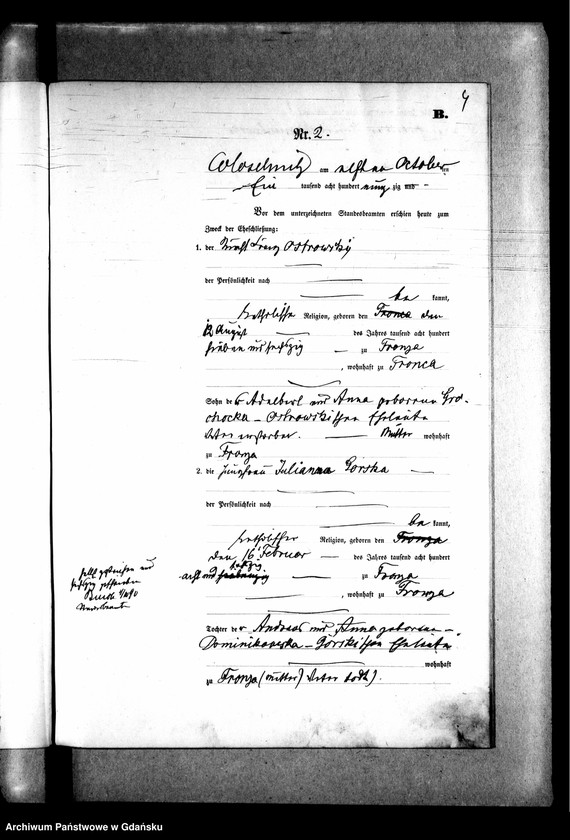 4
B.
Nr. 2.
am elften October ten
Ein tausend acht hundert neun zig und
Vor dem unterzeichneten Standesbeamten erschien heute zum
Zweck der Eheschließung:
1. der Knecht Franz Ostrowski
der Persönlichkeit nach
be kannt,
katholischer Religion, geboren den Fronca den
12 August des Jahres tausend acht hundert
sieben und sechzig zu Fronza
, wohnhaft zu Fronca
Sohn der Adalbert und Anna geborene Gro-
chocka - Ostrowskischen Eheleute
Vater verstorben. Mutter wohnhaft
zu Fronza
2. die Jungfrau Julianna Gorska
der Persönlichkeit nach
be kannt,
katholischer Religion, geboren den Fronza
den 16 Februar des Jahres tausend acht hundert
acht und sechzig zu Fronza
, wohnhaft zu Fronza
Tochter der Andreas und Anna geborene
Dominikowska - Gorskischen Eheleute
wohnhaft
zu Fronza (Mutter) Vater todt).
Standesbeamte
Archiwum Państwowe w Gdańsku